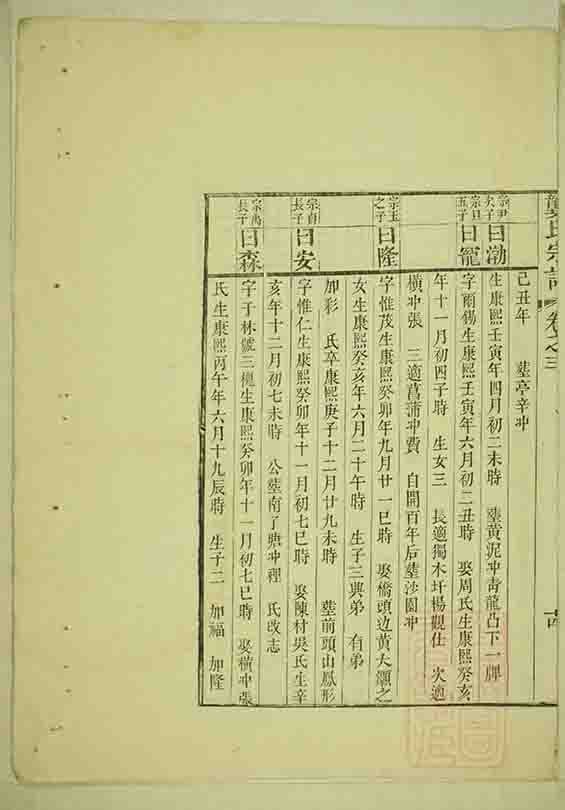 氏宗譜 卷之三
己丑年 墓亭辛冲
宗尹次子 曰渤 生康熙壬寅年四月初二未時 墓黄泥冲青龍凸下一牌
宗旦五子 曰寵 字爾錫生康熙壬寅年六月初二丑時 娶周氏生康熙癸亥
年十一月初四子時 生女三 長適獨木圩楊觀仕 次適
橫冲張 三適菖蒲冲費 自開百年后墓沙園冲
宗玉之子 曰隆 字惟茂生康熙癸卯年九月廿一巳時 娶橋頭边黄大灝之
女生康熙癸亥年六月二十午時 生子三與弟 有弟
加彩 氏卒康熙庚子十二月廿九未時 墓前頭山鳳形
宗貞長子 曰安 字惟仁生康熙癸卯年十一月初七巳時 娶陳村吳氏生辛
亥年十二月初七未時 公墓南了塘冲裡 氏改志
宗禹長子 曰森 字于林號三樾生康熙癸卯年十一月初七巳時 娶橫冲張
氏生康熙丙午年六月十九辰時 生子二 加福 加隆